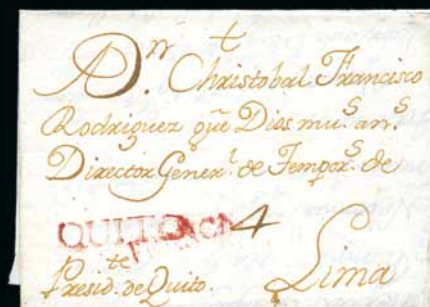 A Dⁿ. Christobal Francisco
Rodriguez que Dios mu.ˢ an.ˢ
Director Gener.ˡ de Tempor.ˢ de
QUITO 4
FRANCA
Presid.ᵗᵉ de Quito. Lima